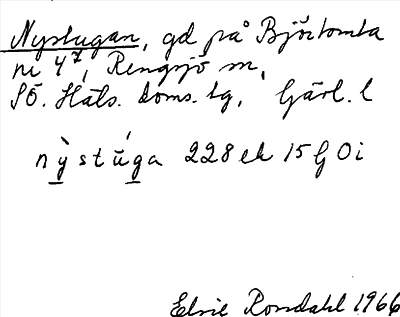 Nystugan, gd på Björtomta
nr 4⁷, Rengsjö sn,
SÖ. Häls. doms. tg, Gävl. l
nỳstúga 228 ek 15G0i
Elsie Rondahl 1966